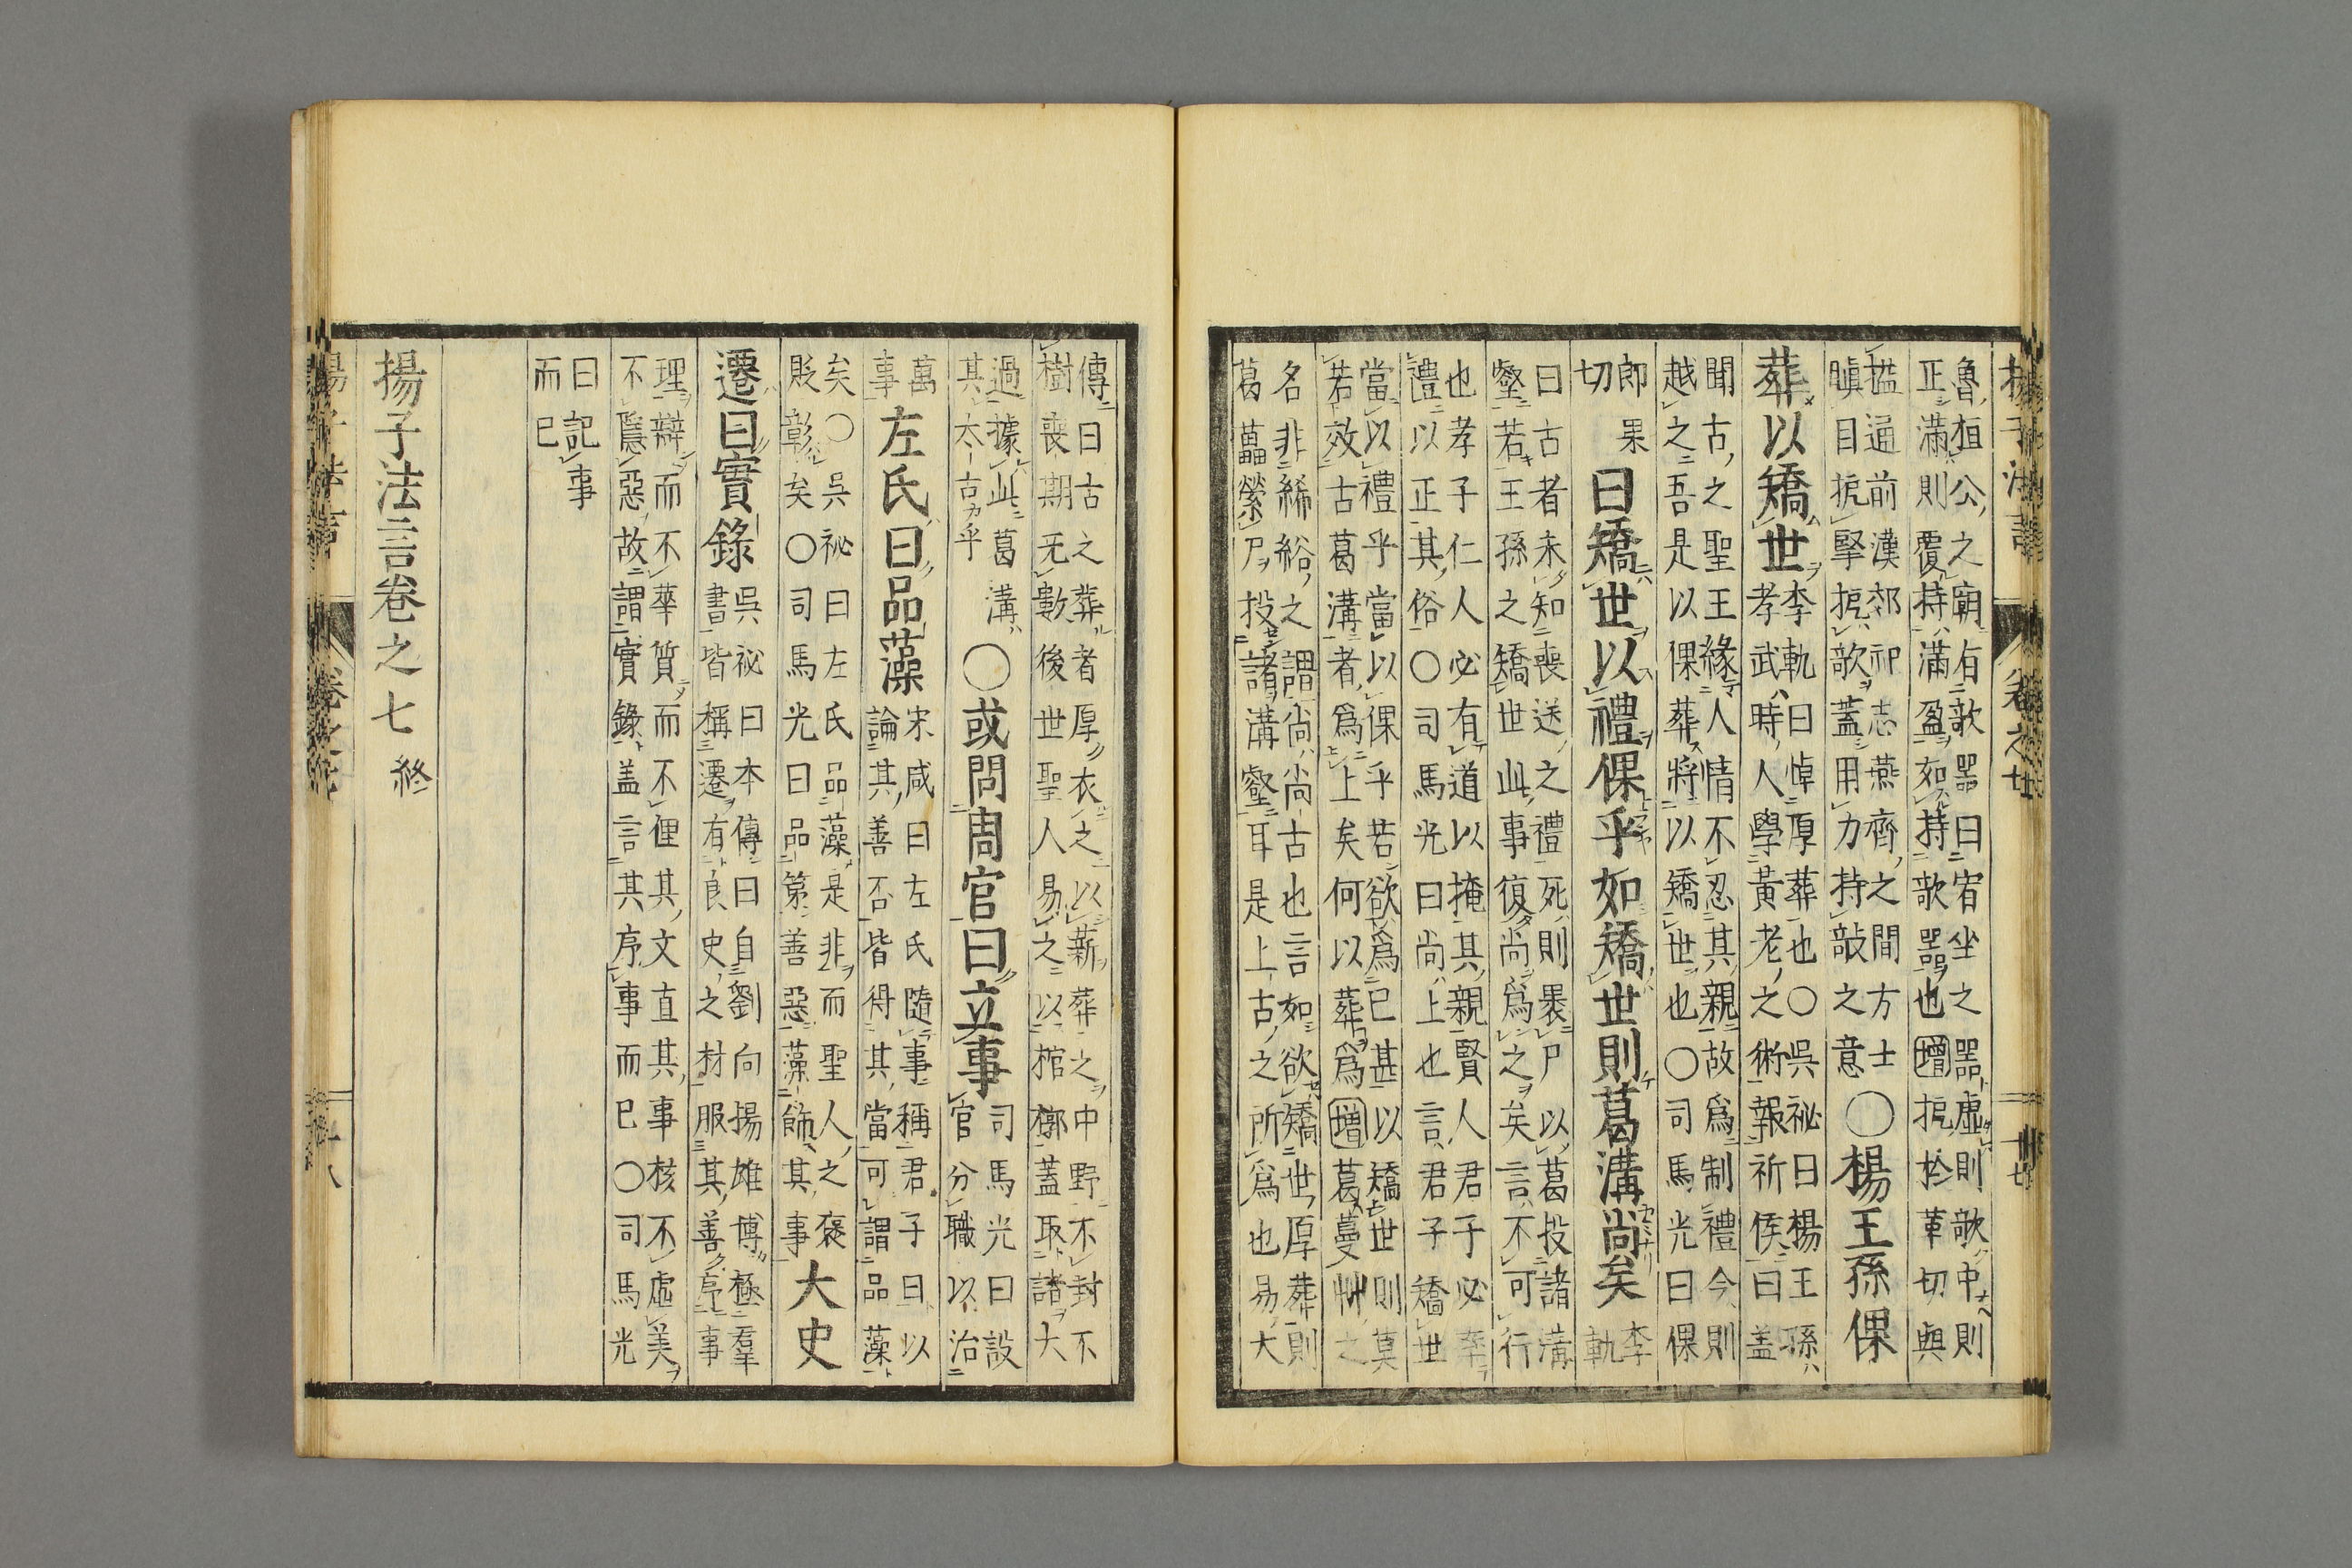 魯桓公之廟有欹器曰宥坐之器虛則欹中則
正滿則覆持滿盈如持欹器也増扼於革切與
搤通前漢郊祀志燕齊之間方士
瞋目扼掔扼欹蓋用力持㪣之意
○楊王孫倮
葬以矯世
李軌曰悼厚葬也○吳祕曰楊王孫
孝武時人學黃老之術報祈侯曰盖
聞古之聖王緣人情不忍其親故爲制禮今則
越之吾是以倮葬將以矯世也○司馬光曰倮
郎果
切
曰矯世以禮倮乎如矯世則葛溝尚矣
李
軌
曰古者未知喪送之禮死則褁尸以葛投諸溝
壑若王孫之矯世此事復尚爲之矣言不可行
也孝子仁人必有道以掩其親賢人君子必率
禮以正其俗○司馬光曰尚上也言君子矯世
當以禮乎當以倮乎若欲爲已甚以矯世則莫
若效古葛溝者爲上矣何以葬爲増葛蔓艸之
名非絺綌之謂尚尚古也言如欲矯世厚葬則
葛藟縈尸投諸溝壑耳是上古之所爲也易大
傳曰古之葬者厚衣之以薪葬之中野不封不
樹喪期无數後世聖人易之以棺槨蓋取諸大
過據此葛溝
其太古乎
○或問周官曰立事
司馬光曰設
官分職以治
萬
事
左氏曰品藻
宋咸曰左氏隨事稱君子曰以
論其善否皆得其當可謂品藻
矣○吳祕曰左氏品藻是非而聖人之褒
貶彰矣○司馬光曰品第善惡藻飾其事
大史
遷曰實錄
吳祕曰本傳曰自劉向揚雄博極羣
書皆稱遷有良史之材服其善序事
理辯而不華質而不俚其文直其事核不虛美
不隱惡故謂實錄盖言其序事而已○司馬光
曰記事
而已
揚子法言卷之七 終